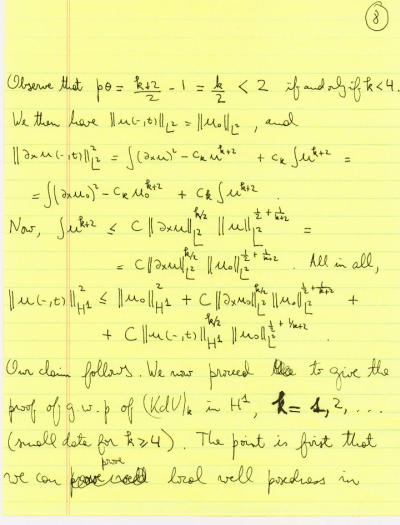 8
Observe that pθ = (k+2)/2 - 1 = k/2 < 2 if and only if k < 4.
We then have ||u(-,t)||_{L^2} = ||u_0||_{L^2}, and
||∂x u(-,t)||_{L^2}^2 = ∫(∂x u)^2 - c_k u^{k+2} + c_k ∫u^{k+2} =
= ∫(∂x u_0)^2 - c_k u_0^{k+2} + c_k ∫u^{k+2}.
Now, ∫u^{k+2} ≤ C ||∂x u||_{L^2}^{k/2} ||u||_{L^2}^{1/2 + 1/(k+2)} =
= C ||∂x u||_{L^2}^{k/2} ||u_0||_{L^2}^{1/2 + 1/(k+2)}. All in all,
||u(-,t)||_{H^1}^2 ≤ ||u_0||_{H^1}^2 + C ||∂x u_0||_{L^2}^{k/2} ||u_0||_{L^2}^{1/2 + 1/(k+2)} +
+ C ||u(-,t)||_{H^1}^{k/2} ||u_0||_{L^2}^{1/2 + 1/k+2}.
Our claim follows. We now proceed to give the
proof of g.w.p of (KdV)_k in H^1, k = 1, 2, ...
(small data for k ≥ 4). The point is first that
we can prove local well posedness in